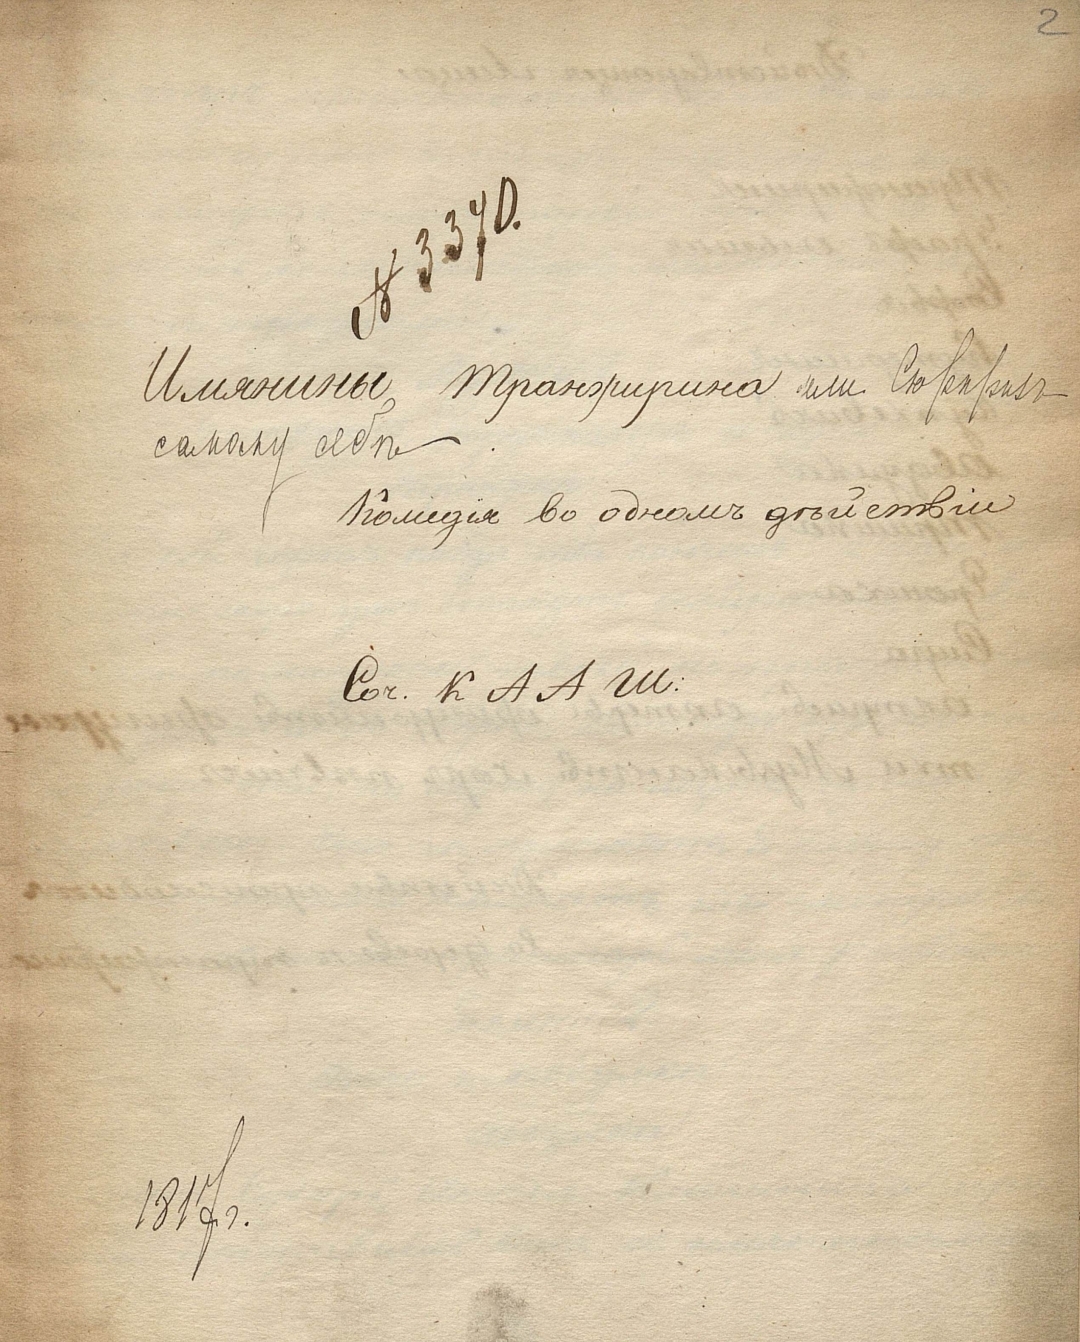 2
№ 3370.
Имянины Транжирина или Сюрпризъ
самому себѣ.
Комедія во одномъ дѣйствіи
Соч. К А А Ш:
1817 г.